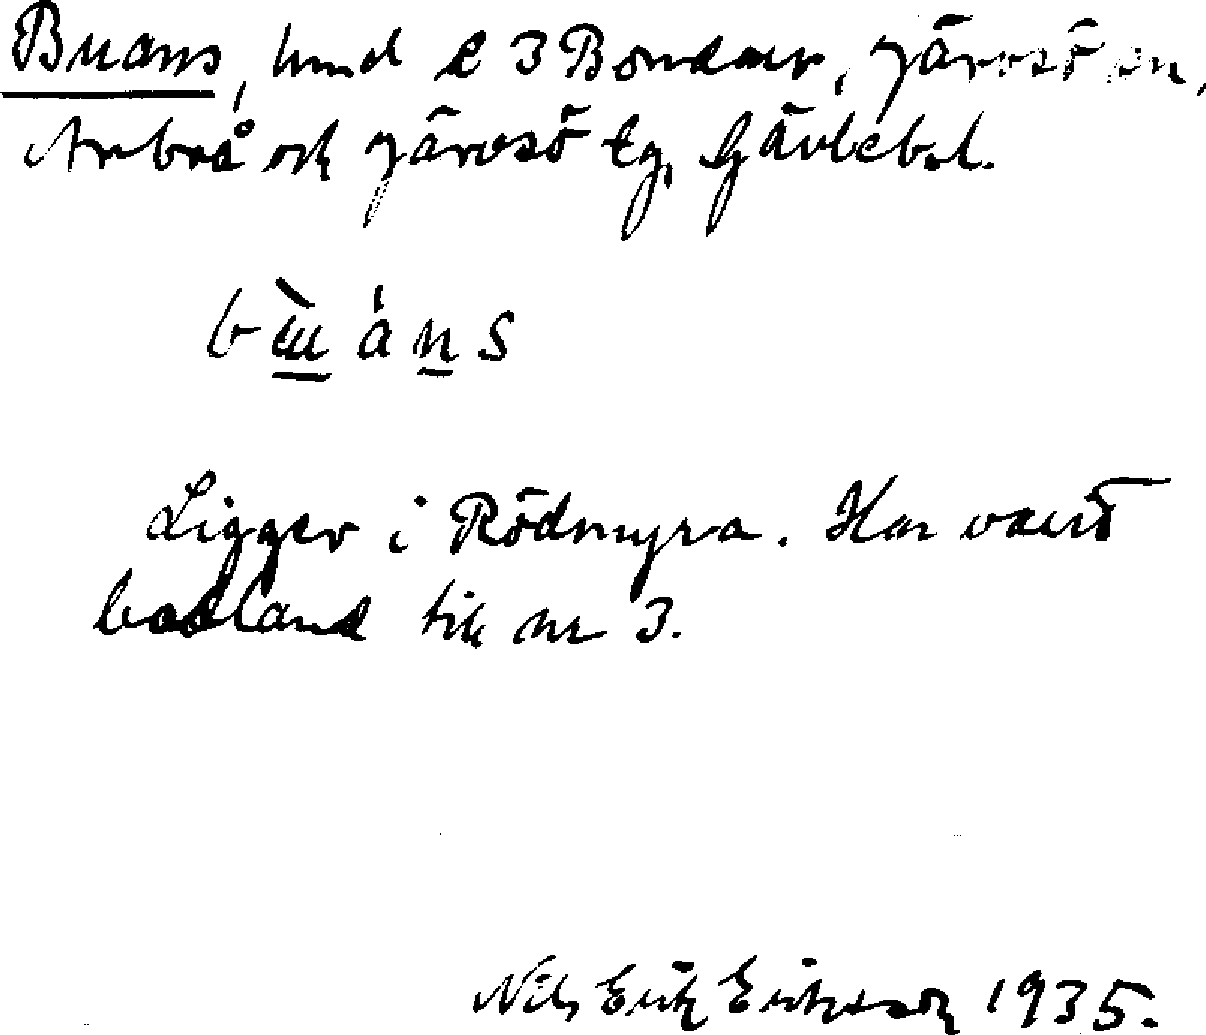 Buans, hmd l 3 Bondarv, Järvsö sn,
Arbrå och Järvsö tg, Gävleb. l.
Ligger i Rödmyra. Har varit
bodland till nr 3.
Nils Erik Eriksson 1935.